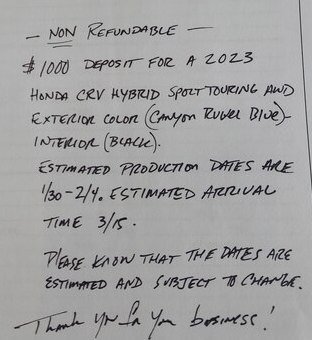 — NON REFUNDABLE —
$1000 DEPOSIT FOR A 2023
HONDA CRV HYBRID SPORT TOURING AWD
EXTERIOR COLOR (CANYON RIVER BLUE)-
INTERIOR (BLACK).
ESTIMATED PRODUCTION DATES ARE
1/30-2/4. ESTIMATED ARRIVAL
TIME 3/15.
PLEASE KNOW THAT THE DATES ARE
ESTIMATED AND SUBJECT TO CHANGE.
Thank you for your business!